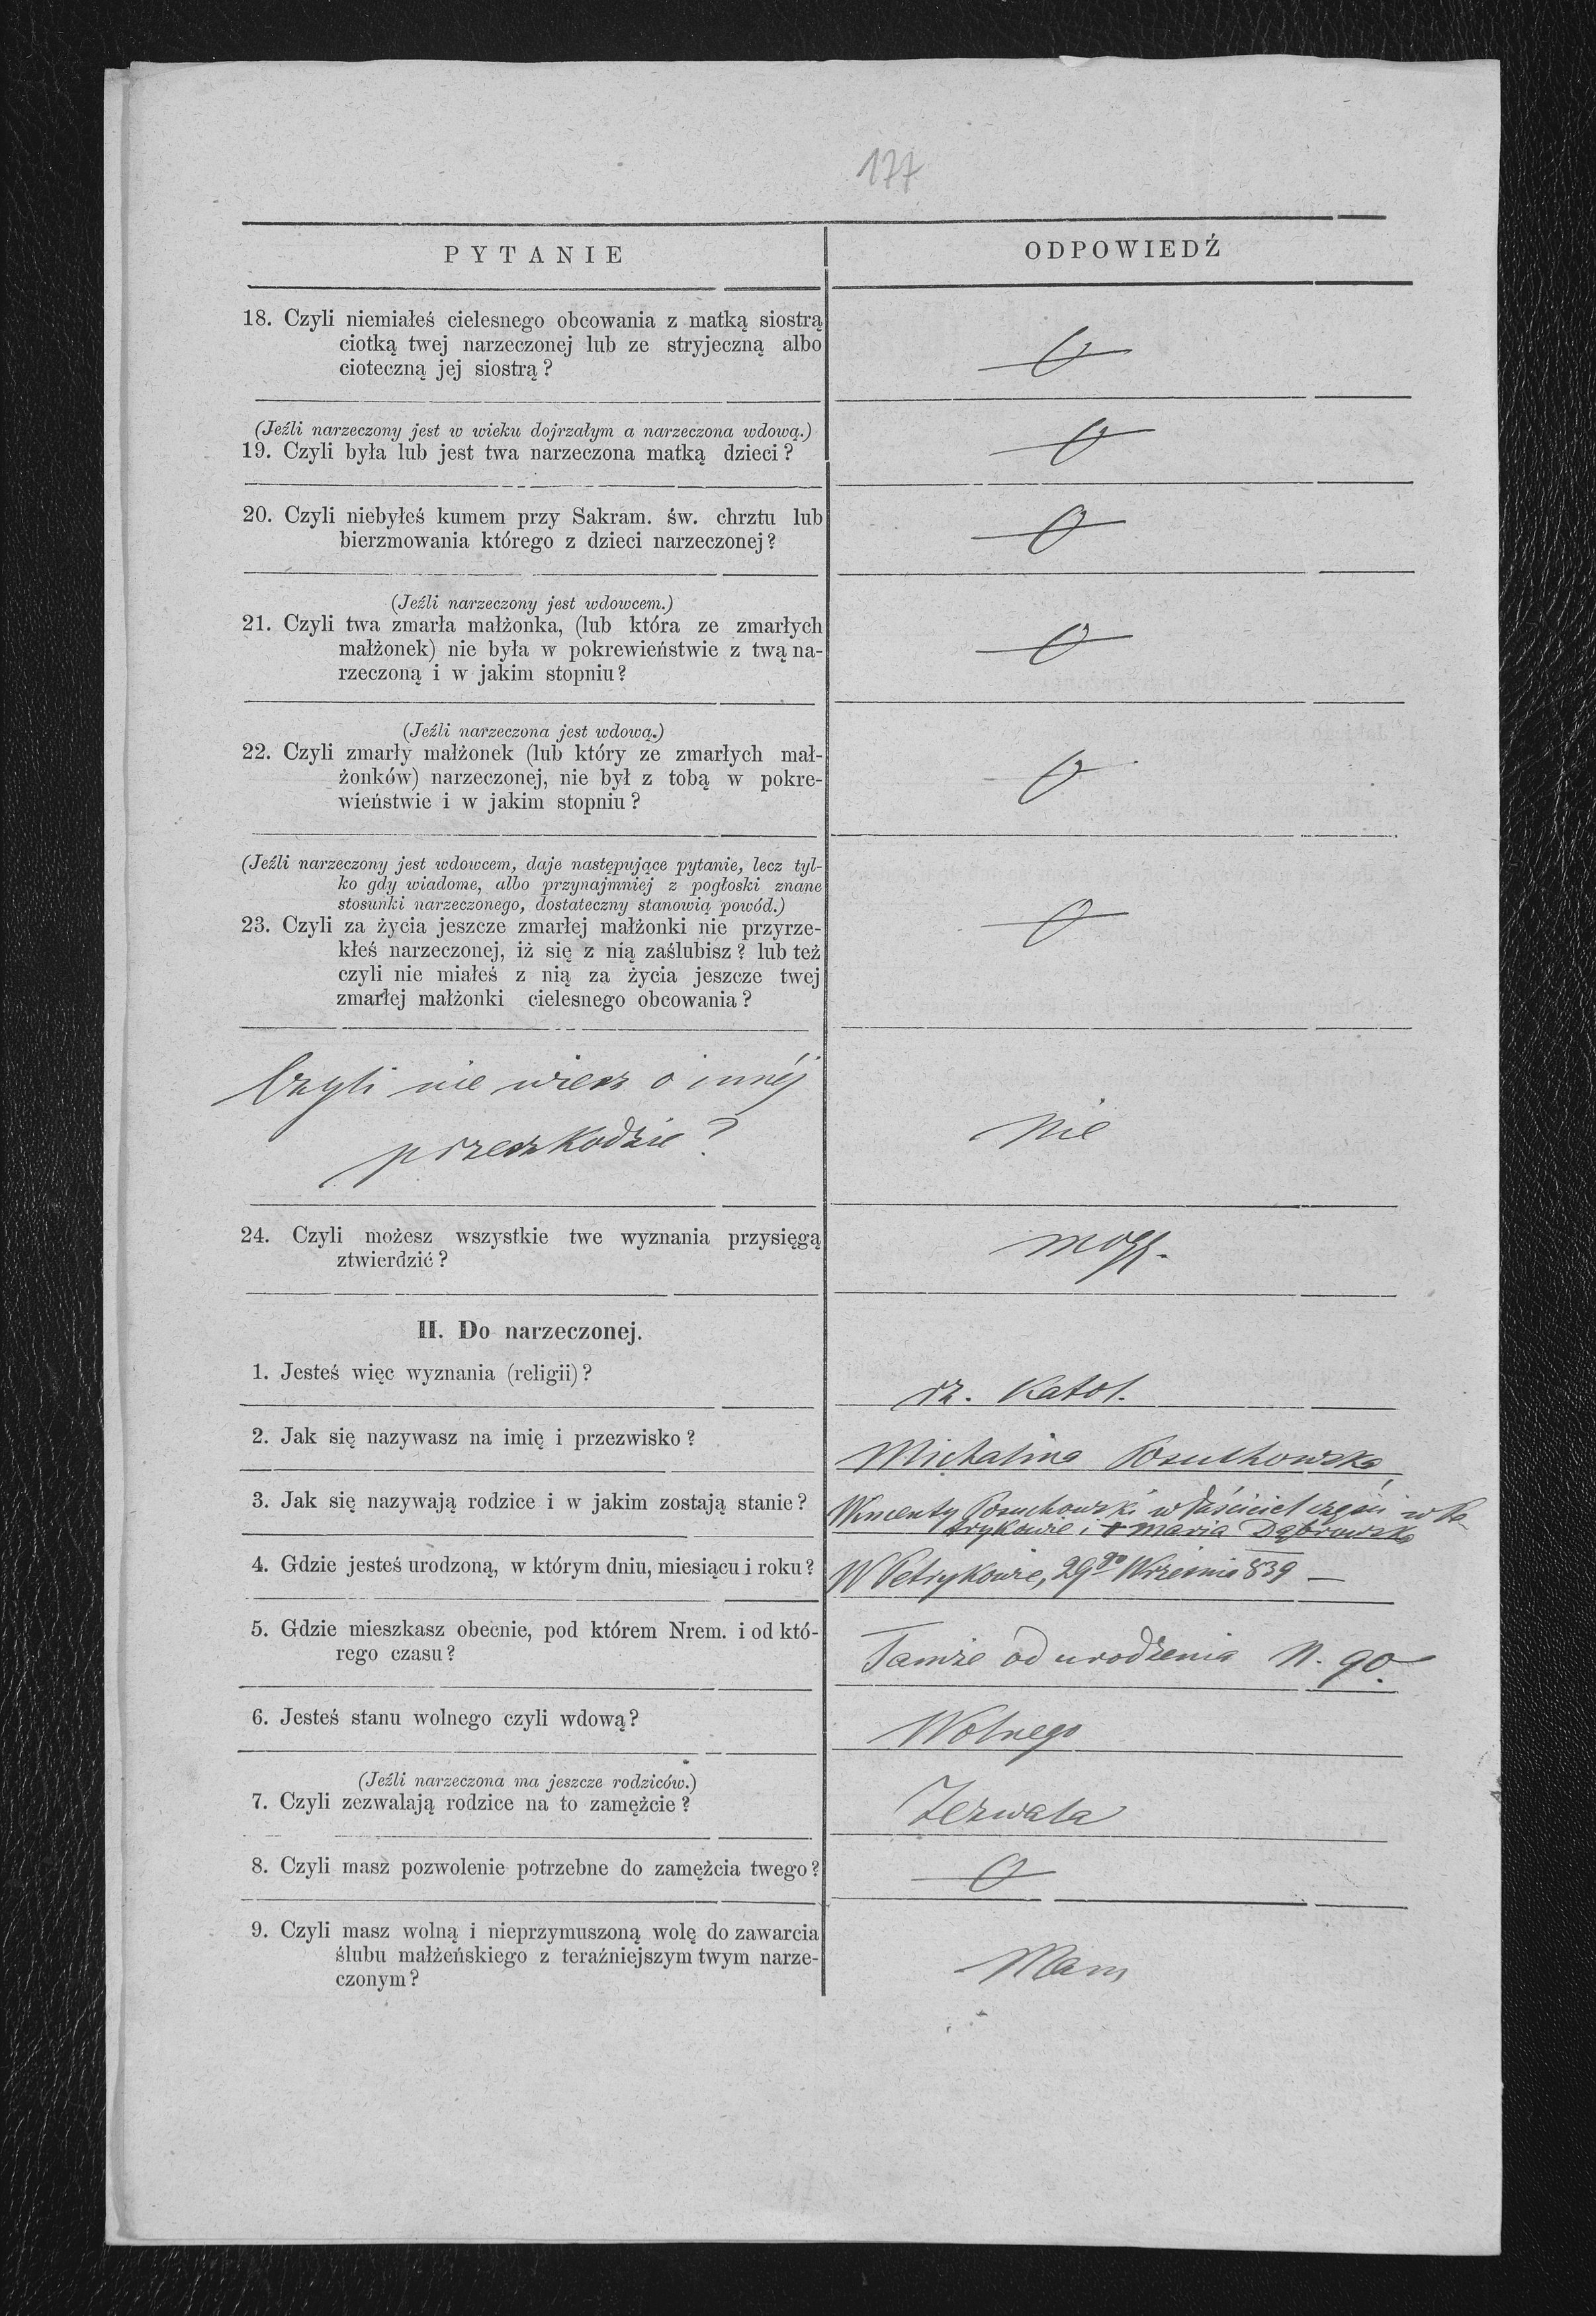 177
PYTANIE
ODPOWIEDŹ
18. Czyli niemiałeś cielesnego obcowania z matką siostrą
ciotką twej narzeczonej lub ze stryjeczną albo
cioteczną jej siostrą?
(Jeźli narzeczony jest w wieku dojrzałym a narzeczona wdową.)
19. Czyli była lub jest twa narzeczona matką dzieci?
20. Czyli niebyłeś kumem przy Sakram. św. chrztu lub
bierzmowania którego z dzieci narzeczonej?
(Jeźli narzeczony jest wdowcem.)
21. Czyli twa zmarła małżonka, (lub która ze zmarłych
małżonek) nie była w pokrewieństwie z twą na-
rzeczoną i w jakim stopniu?
(Jeźli narzeczona jest wdową.)
22. Czyli zmarły małżonek (lub który ze zmarłych mał-
żonków) narzeczonej, nie był z tobą w pokre-
wieństwie i w jakim stopniu?
(Jeźli narzeczony jest wdowcem, daje następujące pytanie, lecz tyl-
ko gdy wiadome, albo przynajmniej z pogłoski znane
stosunki narzeczonego, dostateczny stanowią powód.)
23. Czyli za życia jeszcze zmarłej małżonki nie przyrze-
kłeś narzeczonej, iż się z nią zaślubisz? lub też
czyli nie miałeś z nią za życia jeszcze twej
zmarłej małżonki cielesnego obcowania?
Czyli nie wiesz o innéj
przeszkodzie?
Nie
24. Czyli możesz wszystkie twe wyznania przysięgą
ztwierdzić?
mogę.
II. Do narzeczonej.
1. Jesteś więc wyznania (religii)?
rz. Katol.
2. Jak się nazywasz na imię i przezwisko?
Michalina Posuchowska
3. Jak się nazywają rodzice i w jakim zostają stanie?
Wincenty Posuchowski właściciel części w Pe-
trykowie i + Maria Dąbrowska
4. Gdzie jesteś urodzoną, w którym dniu, miesiącu i roku?
W Petrykowie, 29go Września 839 —
5. Gdzie mieszkasz obecnie, pod którem Nrem. i od któ-
rego czasu?
Tamże od urodzenia N. 90.
6. Jesteś stanu wolnego czyli wdową?
Wolnego
(Jeźli narzeczona ma jeszcze rodziców.)
7. Czyli zezwalają rodzice na to zamężcie?
Zezwala
8. Czyli masz pozwolenie potrzebne do zamężcia twego?
9. Czyli masz wolną i nieprzymuszoną wolę do zawarcia
ślubu małżeńskiego z teraźniejszym twym narze-
czonym?
Mam